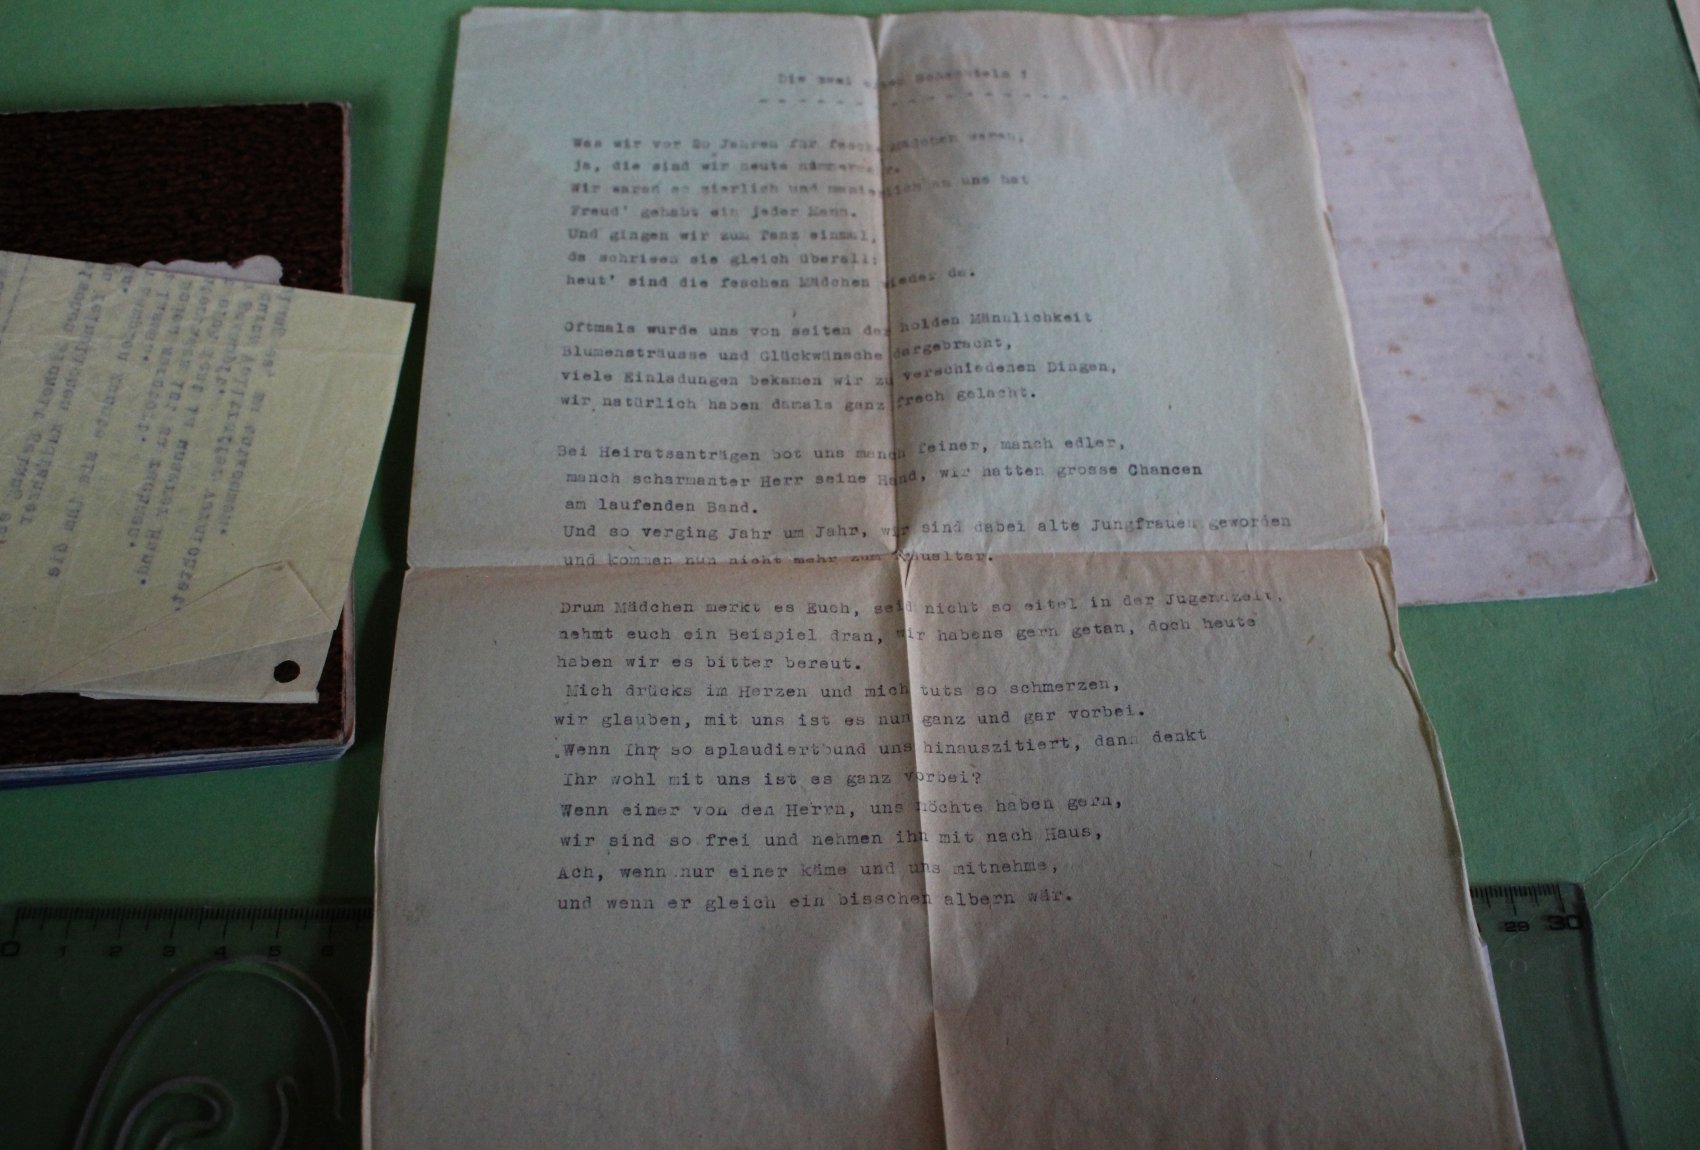 Die zwei alten Schachteln !
- - - - - - - - - - - - - - - - -
Was wir vor 20 Jahren für fesche Mädchen waren,
ja, die sind wir heute nimmermehr.
Wir waren so zierlich und manierlich an uns hat
Freud' gehabt ein jeder Mann.
Und gingen wir zum Tanz einmal,
da schrieen sie gleich überall:
heut' sind die feschen Mädchen wieder da.
Oftmals wurde uns von seiten der holden Männlichkeit
Blumensträusse und Glückwünsche dargebracht,
viele Einladungen bekamen wir zu verschiedenen Dingen,
wir natürlich haben damals ganz frech gelacht.
Bei Heiratsanträgen bot uns manch feiner, manch edler,
manch scharmanter Herr seine Hand, wir hatten grosse Chancen
am laufenden Band.
Und so verging Jahr um Jahr, wir sind dabei alte Jungfrauen geworden
und kommen nun nicht mehr zum Traualtar.
Drum Mädchen merkt es Euch, seid nicht so eitel in der Jugendzeit,
nehmt euch ein Beispiel dran, wir habens gern getan, doch heute
haben wir es bitter bereut.
Mich drücks im Herzen und mich tuts so schmerzen,
wir glauben, mit uns ist es nun ganz und gar vorbei.
Wenn Ihr so aplaudiert und uns hinauszitiert, dann denkt
Ihr wohl mit uns ist es ganz vorbei?
Wenn einer von den Herrn, uns möchte haben gern,
wir sind so frei und nehmen ihn mit nach Haus,
Ach, wenn nur einer käme und uns mitnehme,
und wenn er gleich ein bisschen albern wär.
0 1 2 3 4 5 6
29 30